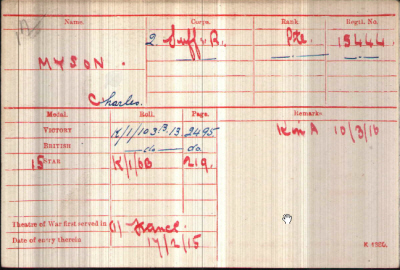 Name. Corps. Rank. Regtl. No.
2. Suff. R. Pte. 15444
MYSON.
Charles.
Medal. Roll. Page. Remarks.
VICTORY K/1/103 B.13 2495 K in A 10/3/16
BRITISH —do— do.
15 STAR K/1/6B 219.
Theatre of War first served in (1) France.
Date of entry therein 17/2/15
K 1380.